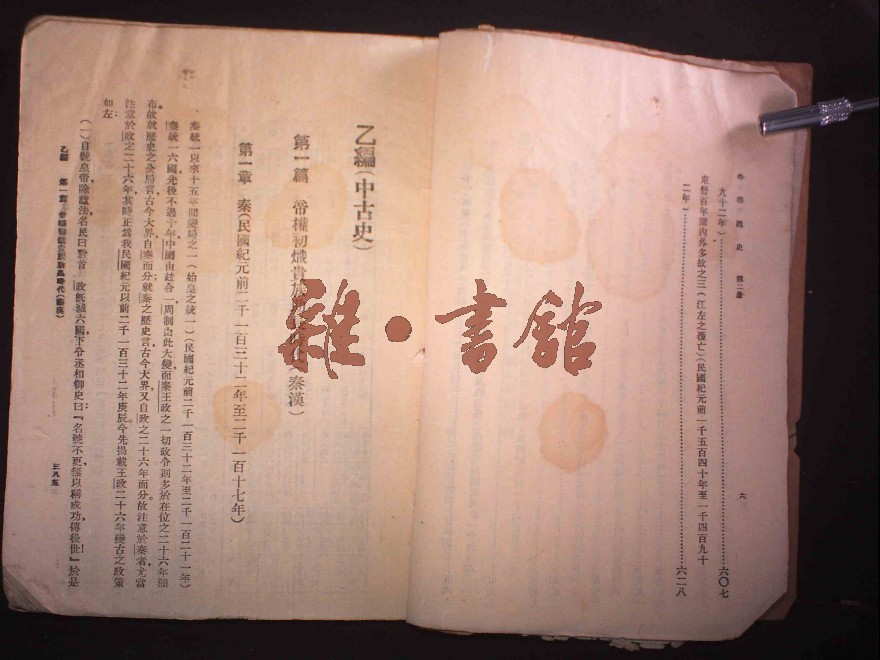 中華通史 第二册 六
九十二年）……六〇七
東晉百年間內外多故之三（江左之覆亡）（民國紀元前一千五百四十年至一千四百九十
二年）……六二八
雜·書舘
乙編（中古史）
第一篇 帝權初熾貴族 秦漢）
第一章 秦（民國紀元前二千一百三十二年至二千一百十七年）
秦統一以來十五年間變局之一（始皇之統一）（民國紀元前二千一百三十二年至二千一百二十一年）
秦統一六國，先後不過十年，中國由歧合一，周制由此大變，而秦王政之一切政令，則多於在位之二十六年頒
布，故就歷史之全局言，古今大界，自秦而分；就秦之歷史言，古今大界，又自政之二十六年而分。故注意於秦者，尤當
注意於政之二十六年，其時正為我民國紀元以前二千一百三十二年庚辰。今先揭載王政二十六年變古之政策
如左：
（一）自號皇帝，除諡法，名民曰黔首 政既滅六國，下令丞相御史曰：『名號不更，無以稱成功，傳後世！』於是
乙編 第一篇 帝權初熾貴族 時代（秦漢） 三八五